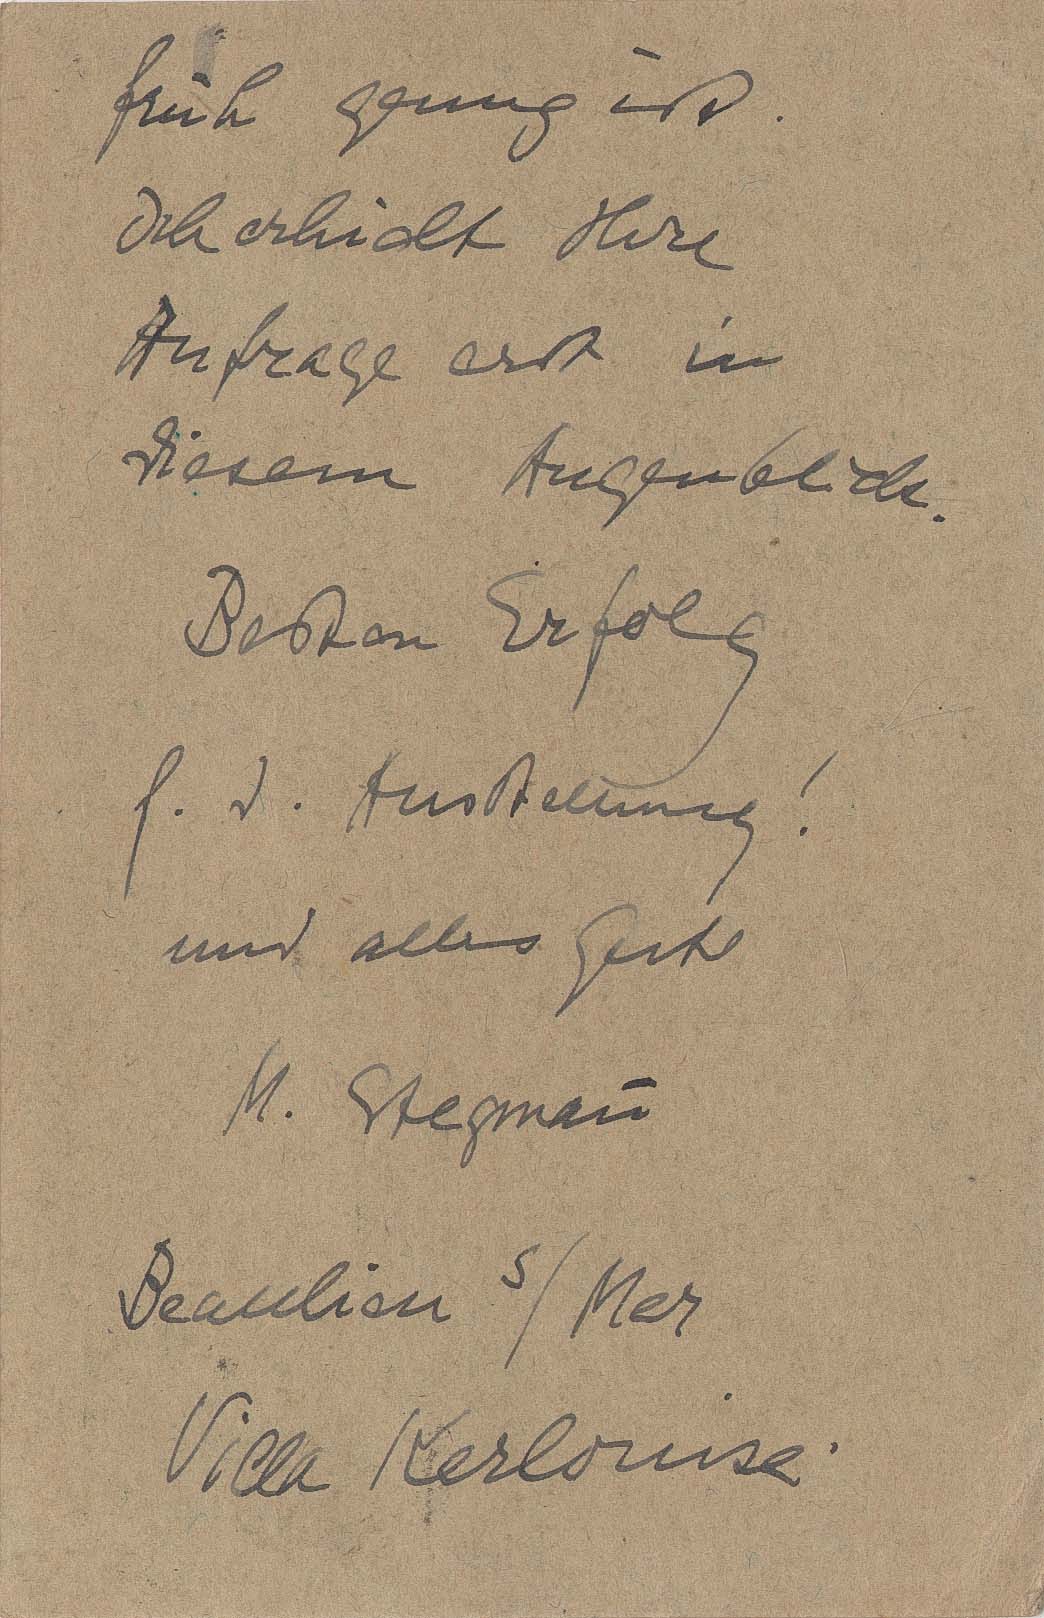 früh genug ist.
Ich erhielt Ihre
Anfrage erst in
diesem Augenblick.
Besten Erfolg
f. d. Ausstellung!
und alles Gute
M. Stegmañ
Beaulieu s/Mer
Villa Kerlouise